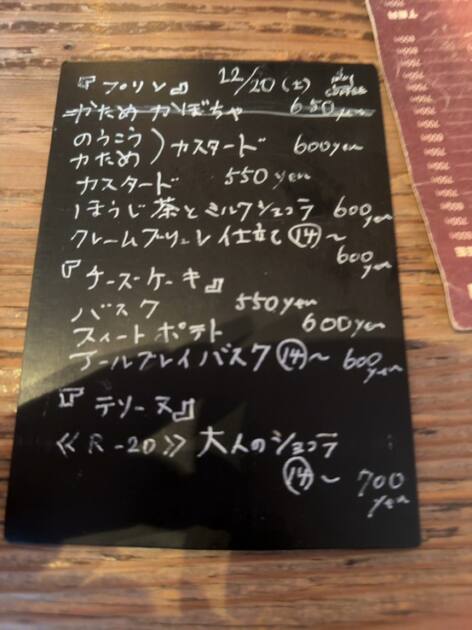 『プリン』 12/20(土)
かためかぼちゃ 650yen
のうこう
かため ) カスタード 600yen
カスタード 550yen
ほうじ茶とミルクショコラ 600
yen
クレームブリュレ仕立て ⑭〜
600
yen
『チーズケーキ』
バスク 550yen
スィートポテト 600yen
アールグレイバスク ⑭〜 600
yen
『テリーヌ』
≪R-20≫ 大人のショコラ
⑭〜 700
yen